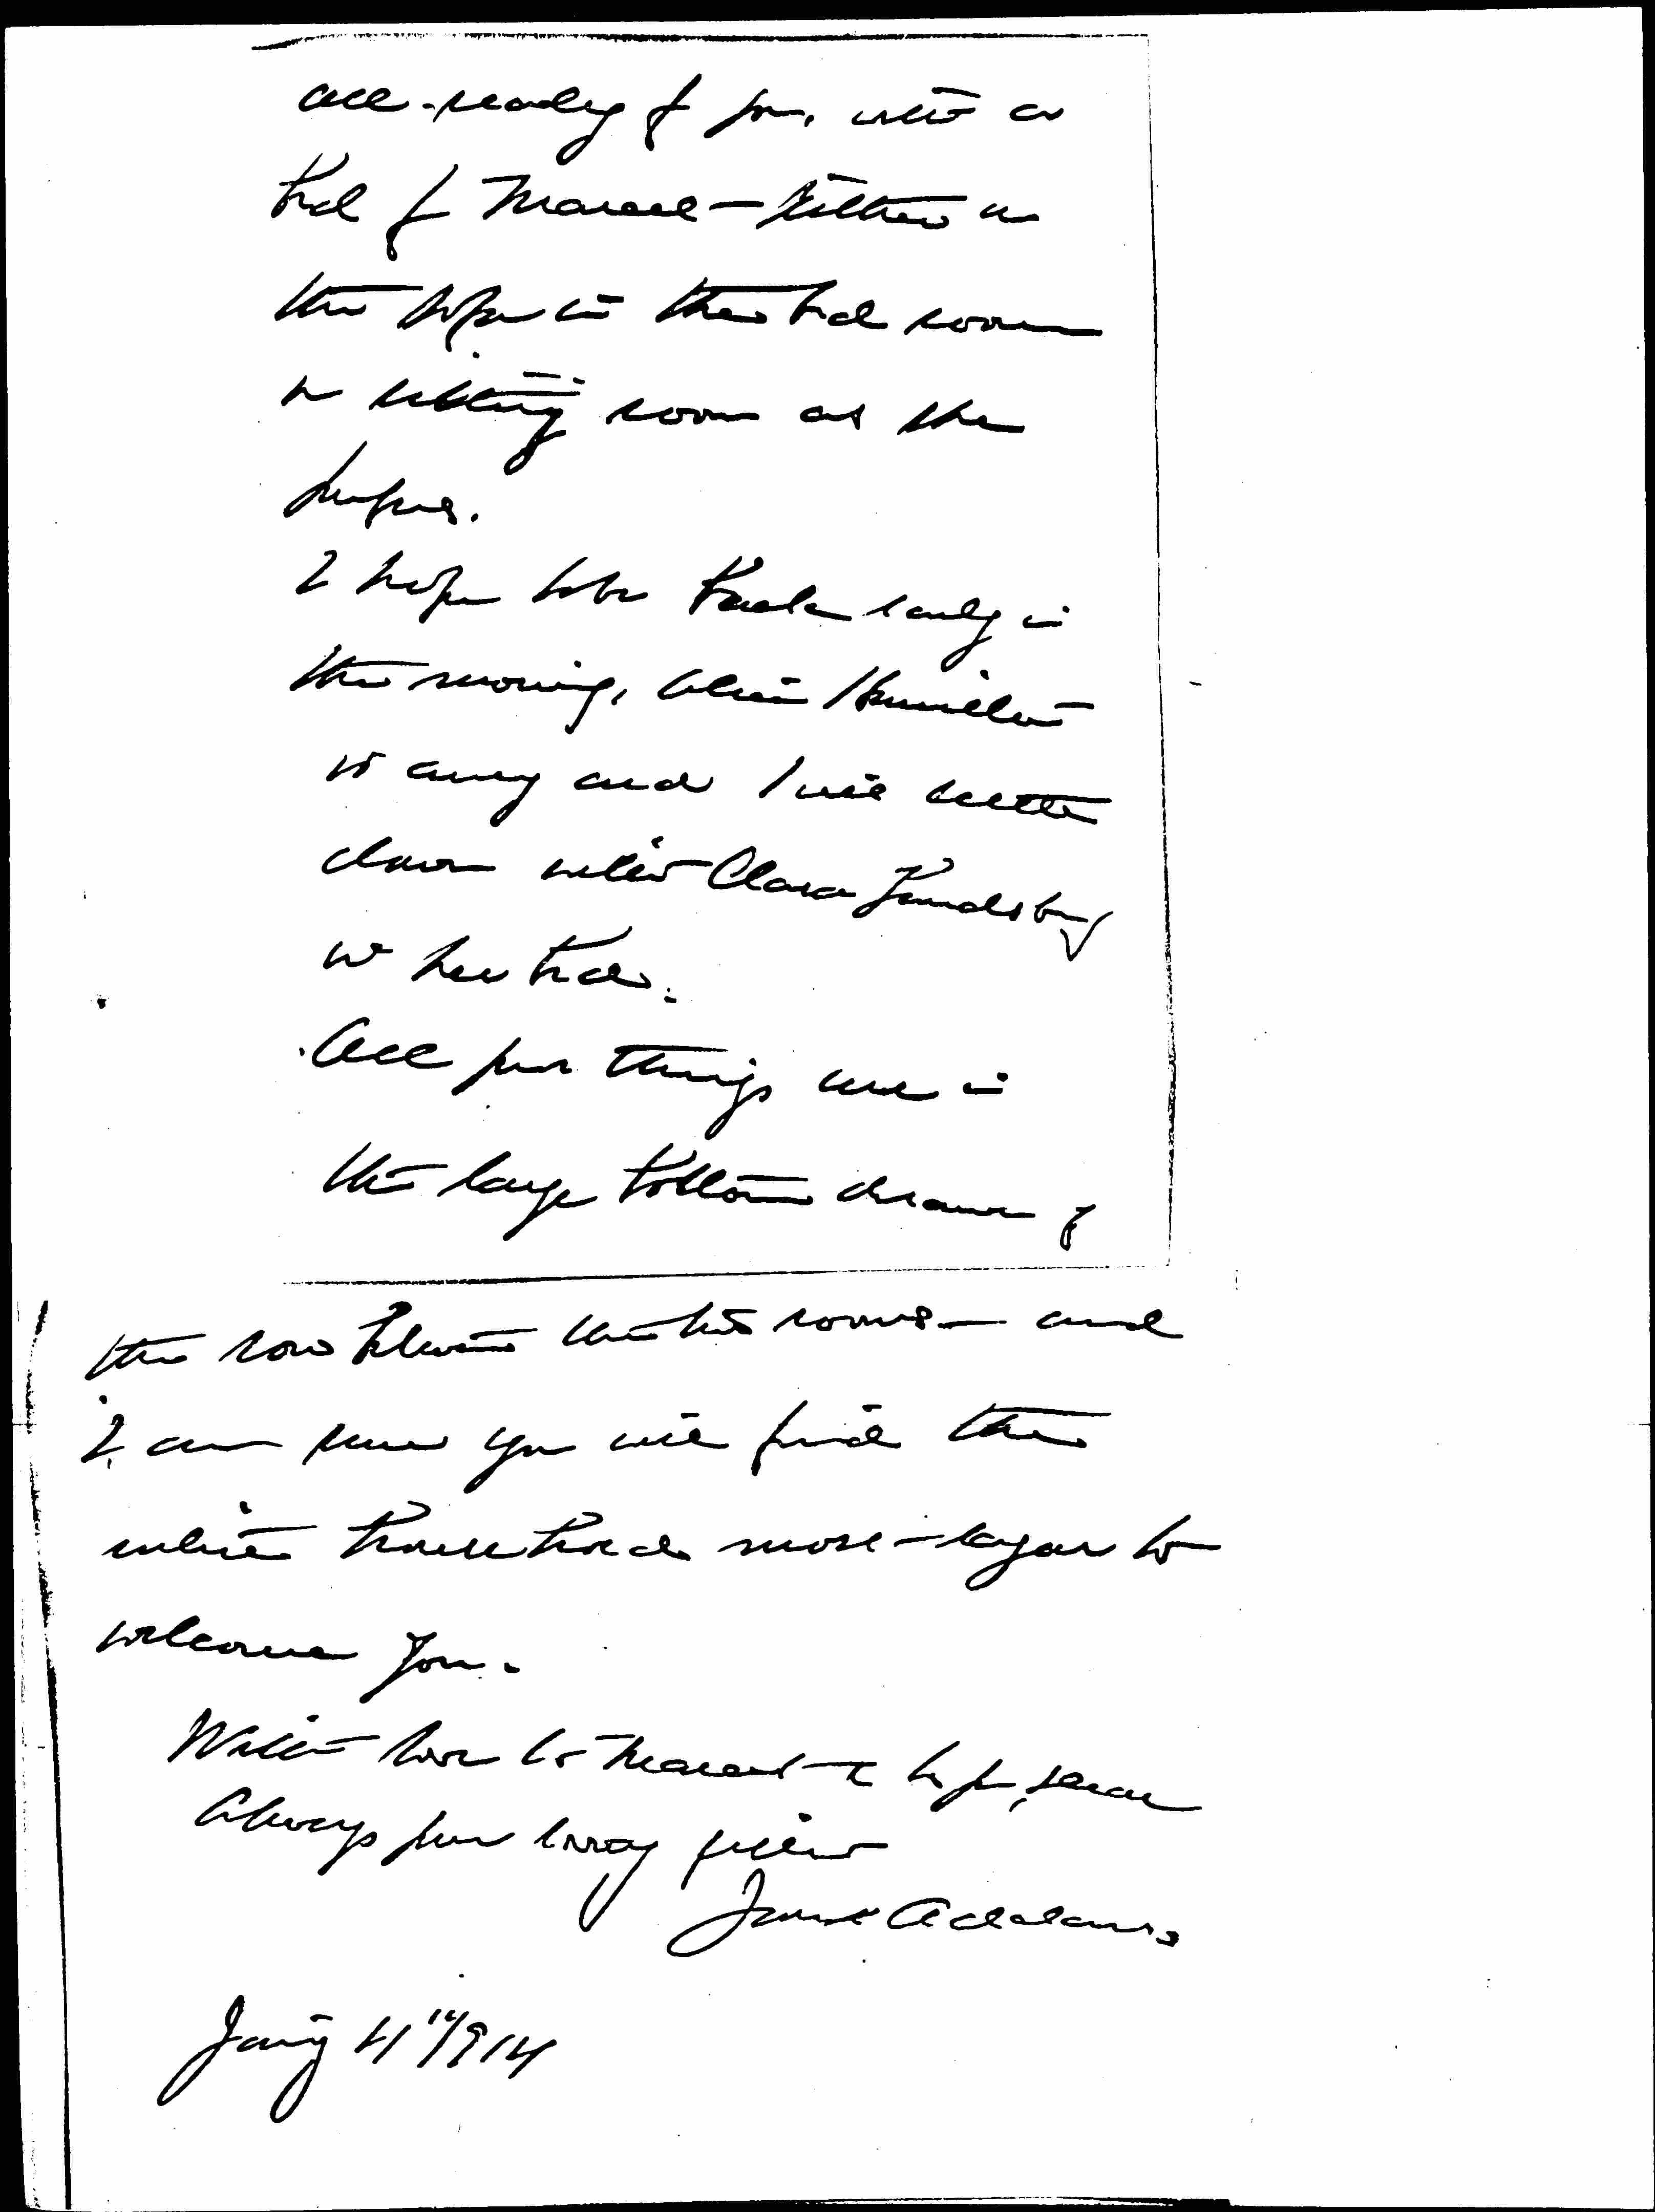 all ready for you, with a
bed for Marcet — either in
the sofa in the bed room
or sitting room as she
prefers.
I hope to be back early in
the morning, Alice Hamilton
is away and I will settle
down with Clara Landsberg
in her bed.
All your things are in
the large bottom drawer of
the row between the two rooms — and
I am sure you will find the
entire household more — eager to
welcome you.
With love to Marcet & to you, dear
Always your loving friend
Jane Addams
Jan'y 4" 1914